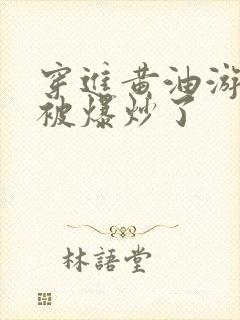 穿進黃油游
被爆炒了
林語堂